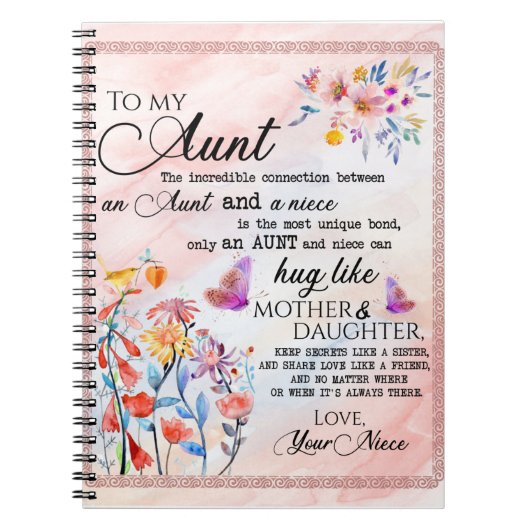 To my
Aunt
The incredible connection between
an Aunt and a niece
is the most unique bond,
only an AUNT and niece can
hug like
MOTHER &
DAUGHTER,
KEEP SECRETS LIKE A SISTER,
AND SHARE LOVE LIKE A FRIEND,
AND NO MATTER WHERE
OR WHEN IT'S ALWAYS THERE.
LOVE,
Your Niece